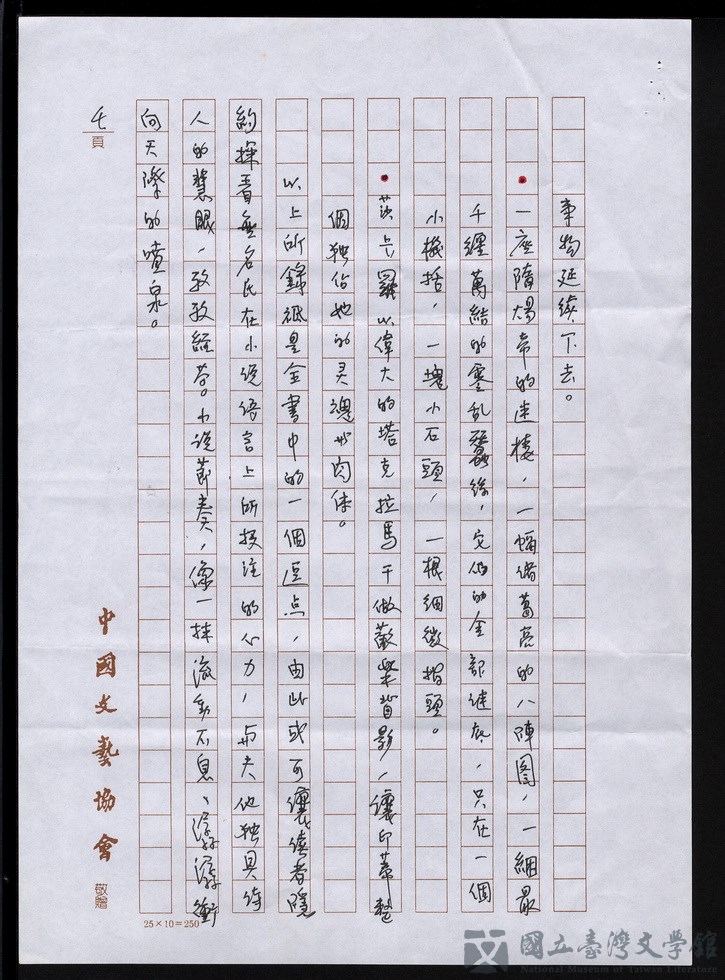 事物延续下去。
一座隋煬帝的迷樓，一幅諸葛亮的八陣圖，一綑最
千纏萬結的零乱蠶絲，它们的全部謎底，只在一個
小機括，一塊小石頭，一根細微指頭。
莎卡羅以偉大的塔克拉馬干做歡樂背影，讓印蒂整
個独佔她的灵魂与肉体。
以上所錄祗是全書中的一個逗点，由此或可讓读者隱
約探看無名氏在小说语言上所投注的心力，与夫他独具诗
人的慧眼，孜孜經营。小说節奏，像一抹流動不息、
向天際的噴泉。
七頁
中國文藝協會 敬贈
25×10=250
國立臺灣文學館
National Museum of Taiwan Literature